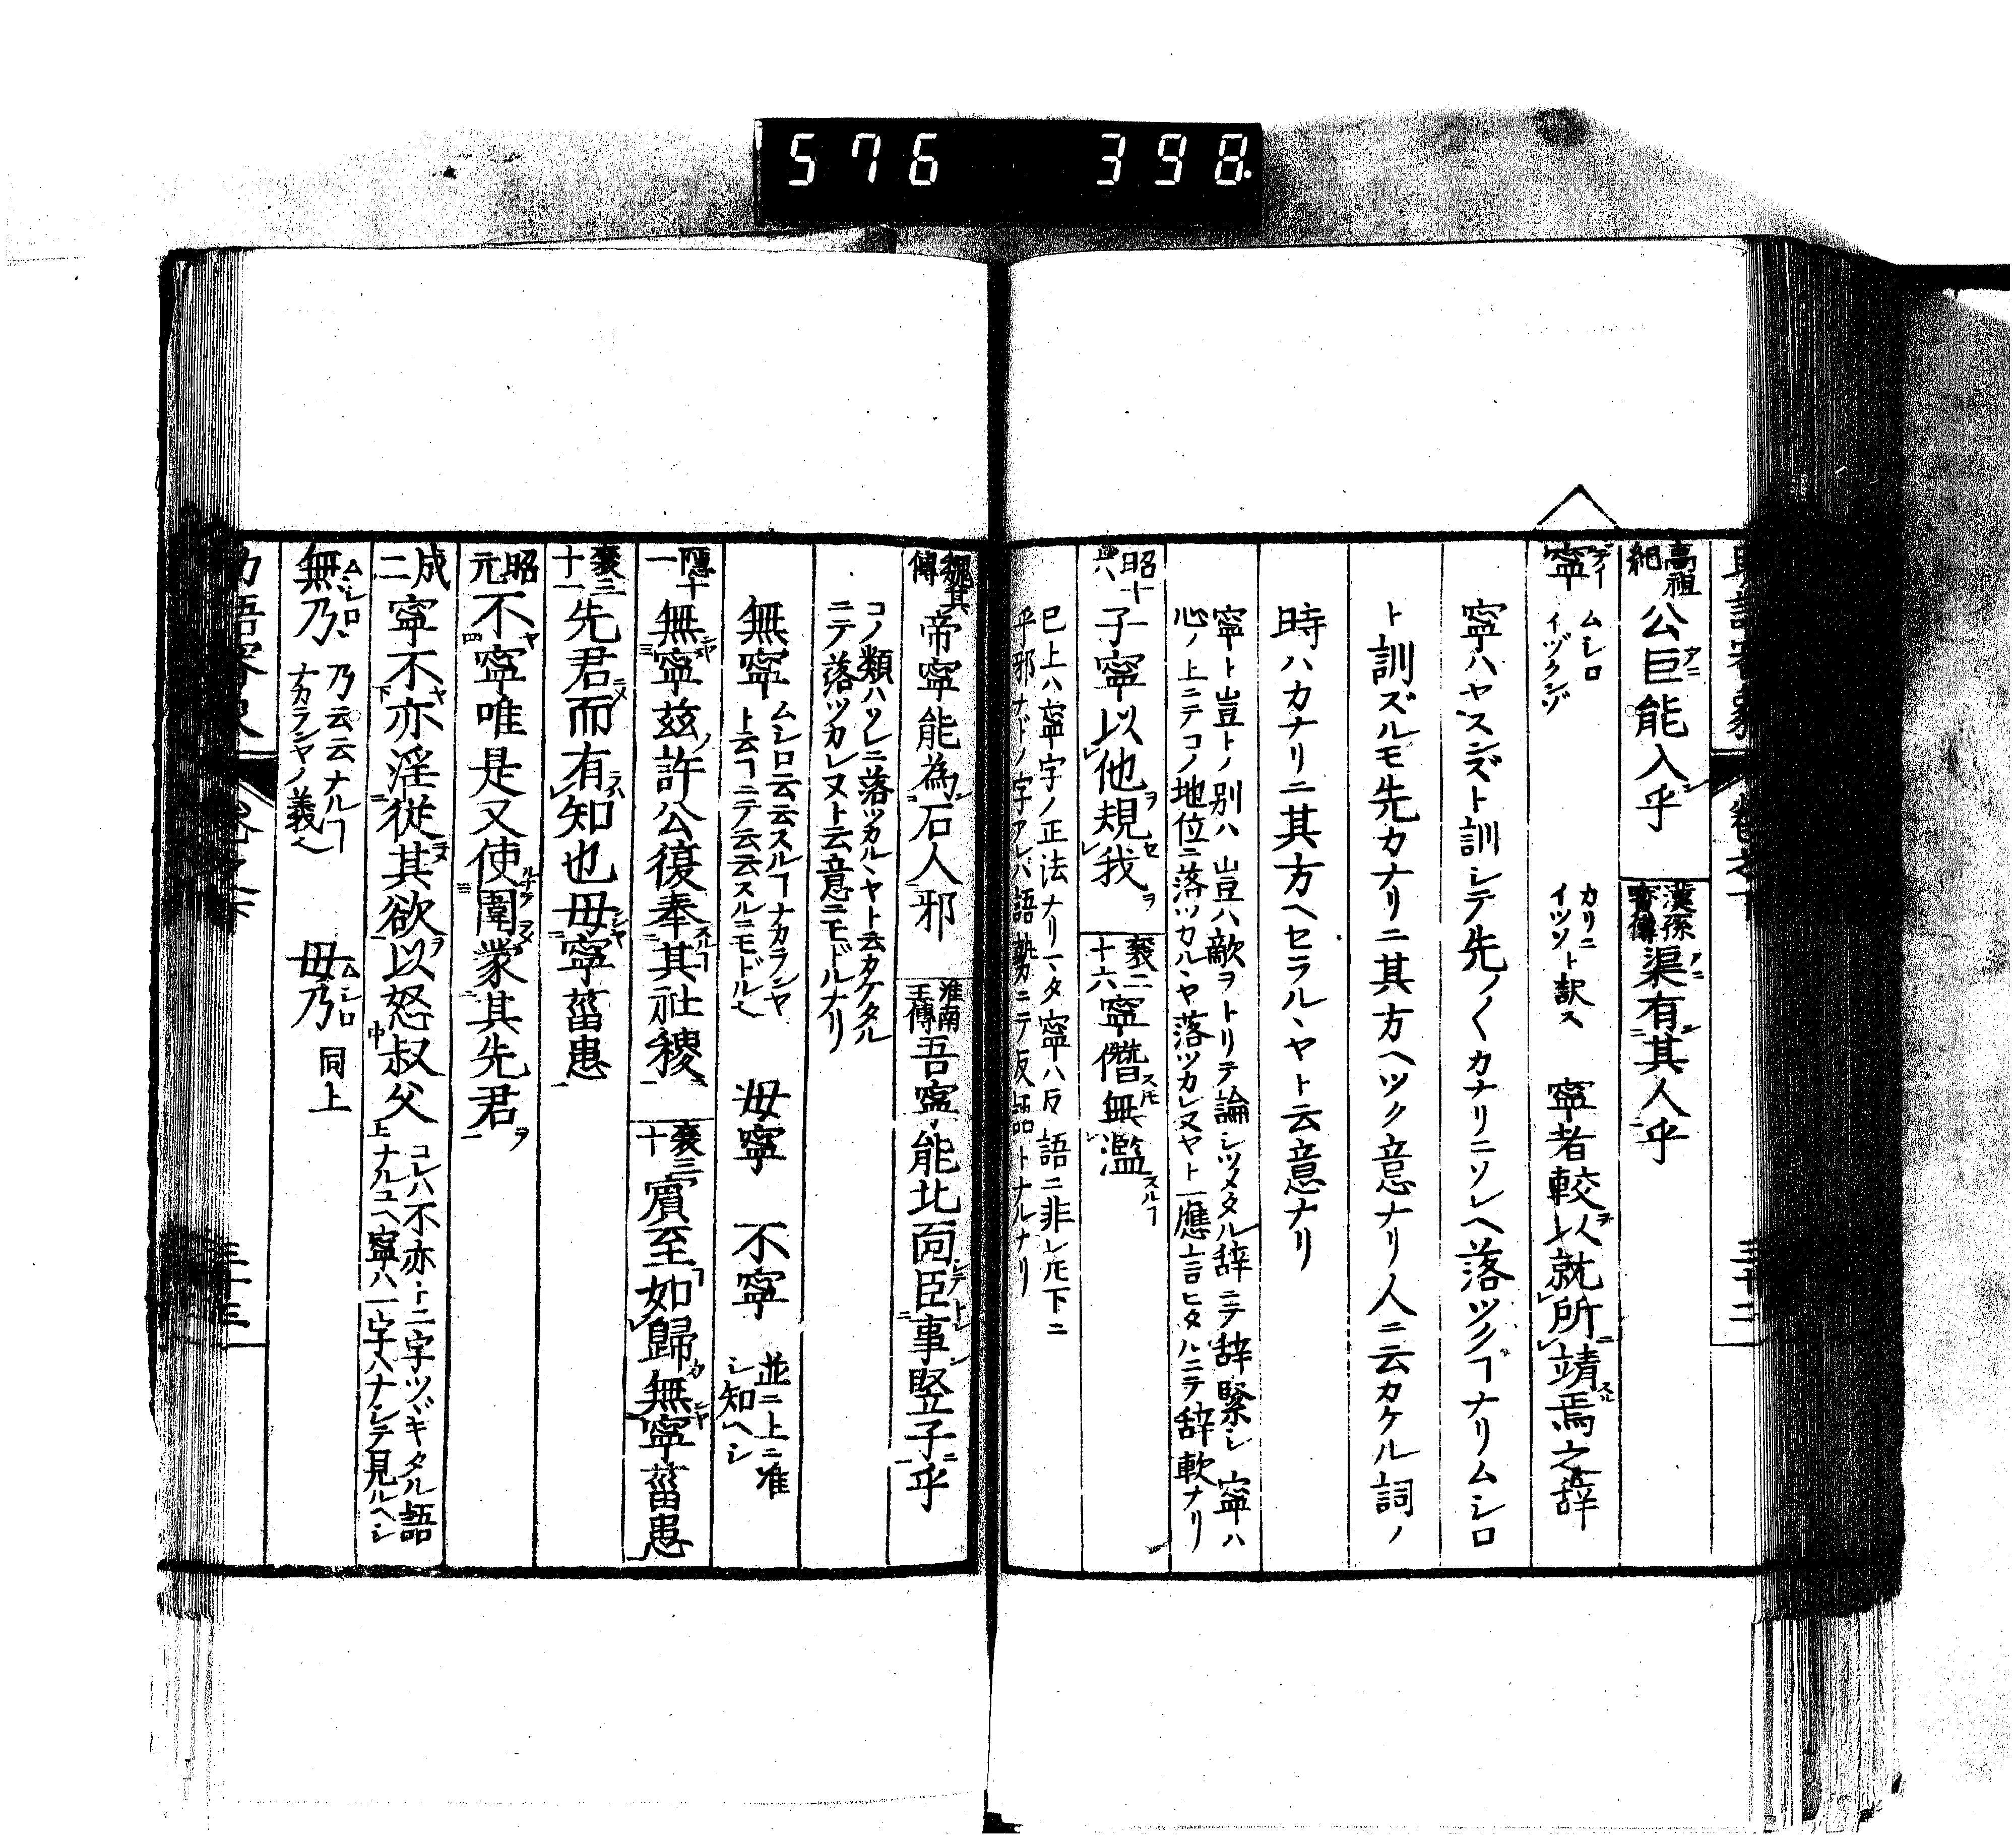 576 398
高祖紀 公巨能入乎 漢孫寳傳 渠有其人乎
寧 デイ ムシロ イヅクンゾ カリニイツソト訳ス 寧者較以就所靖焉之辞
寧ハヤスンズト訓シテ先ノ〱カナリニソレヘ落ツクヿナリムシロ
ト訓ズルモ先カナリニ其方ヘツク意ナリ人ニ云カケル詞ノ
時ハカナリニ其方ヘセラルヽヤト云意ナリ
寧ト豈トノ別ハ豈ハ敵ヲトリテ論シツメタル辞ニテ辞緊シ寧ハ
心ノ上ニテコノ地位ニ落ツカルヽヤ落ツカレヌヤト一應言ヒタルニテ辞軟ナリ
昭十六 子寧以他規我 襄二十六 寧僭無濫
已上ハ寧字ノ正法ナリマタ寧ハ反語ニ非レ𪜈下ニ
乎邪ナドノ字アレバ語勢ニテ反語トナルナリ
魏其傳 帝寧能為石人邪 淮南王傳 吾寧能北面臣事竪子乎
コノ類ハソレニ落ツカルヽヤト云カケタル
ニテ落ツカレヌト云意ニモドルナリ
無寧 ムシロ云云スルヿナカランヤ
ト云ヿニテ云云スルニモドルヘ 毋寧 不寧 並ニ上ニ准
シ知ヘシ
隠十一 無寧茲許公復奉其社稷 襄三十 賓至如歸無寧菑患
襄三十一 先君而有知也毋寧菑患
昭元 不寧唯是又使圍蒙其先君
成二 寧不亦淫従其欲以怒叔父 コレハ不亦ト二字ツヾキタル語
ナルユヘ寧ハ一字ハナシテ見ルヘシ
無乃 ムシロ 乃云云ナルヿ
ナカランヤノ義ヘ 毋乃 ムシロ 同上